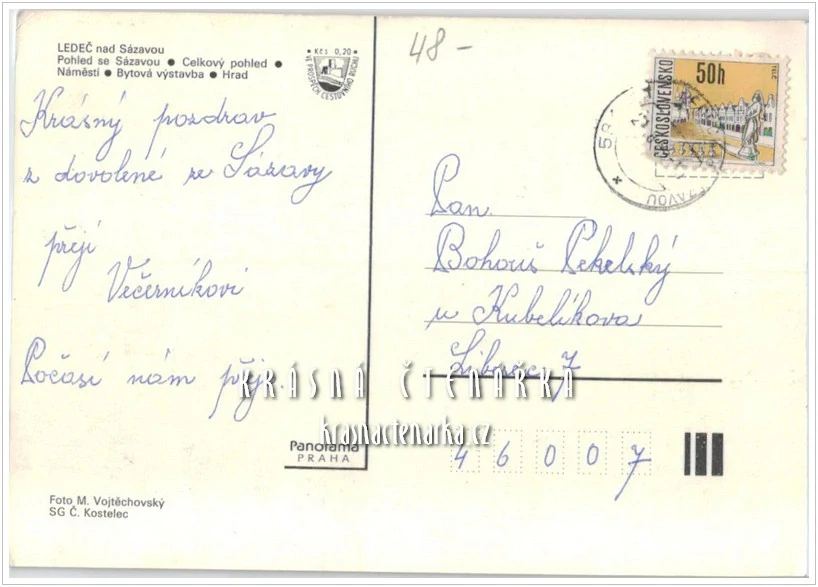 LEDEČ nad Sázavou
Pohled se Sázavou ● Celkový pohled ●
Náměstí ● Bytová výstavba ● Hrad
● Kčs 0,20 ●
VE PROSPĚCH CESTOVNÍHO RUCHU
48-
ČESKOSLOVENSKO
50h
TELČ
Krásný pozdrav
z dovolené ze Sázavy
přejí
Večerníkovi
Počasí nám přeje.
Pan
Bohouš Pekelský
u Kubelíkova
Liberec 7
46007
KRÁSNÁ ČTENÁŘKA
krasnactenarka.cz
Panorama
PRAHA
Foto M. Vojtěchovský
SG Č. Kostelec